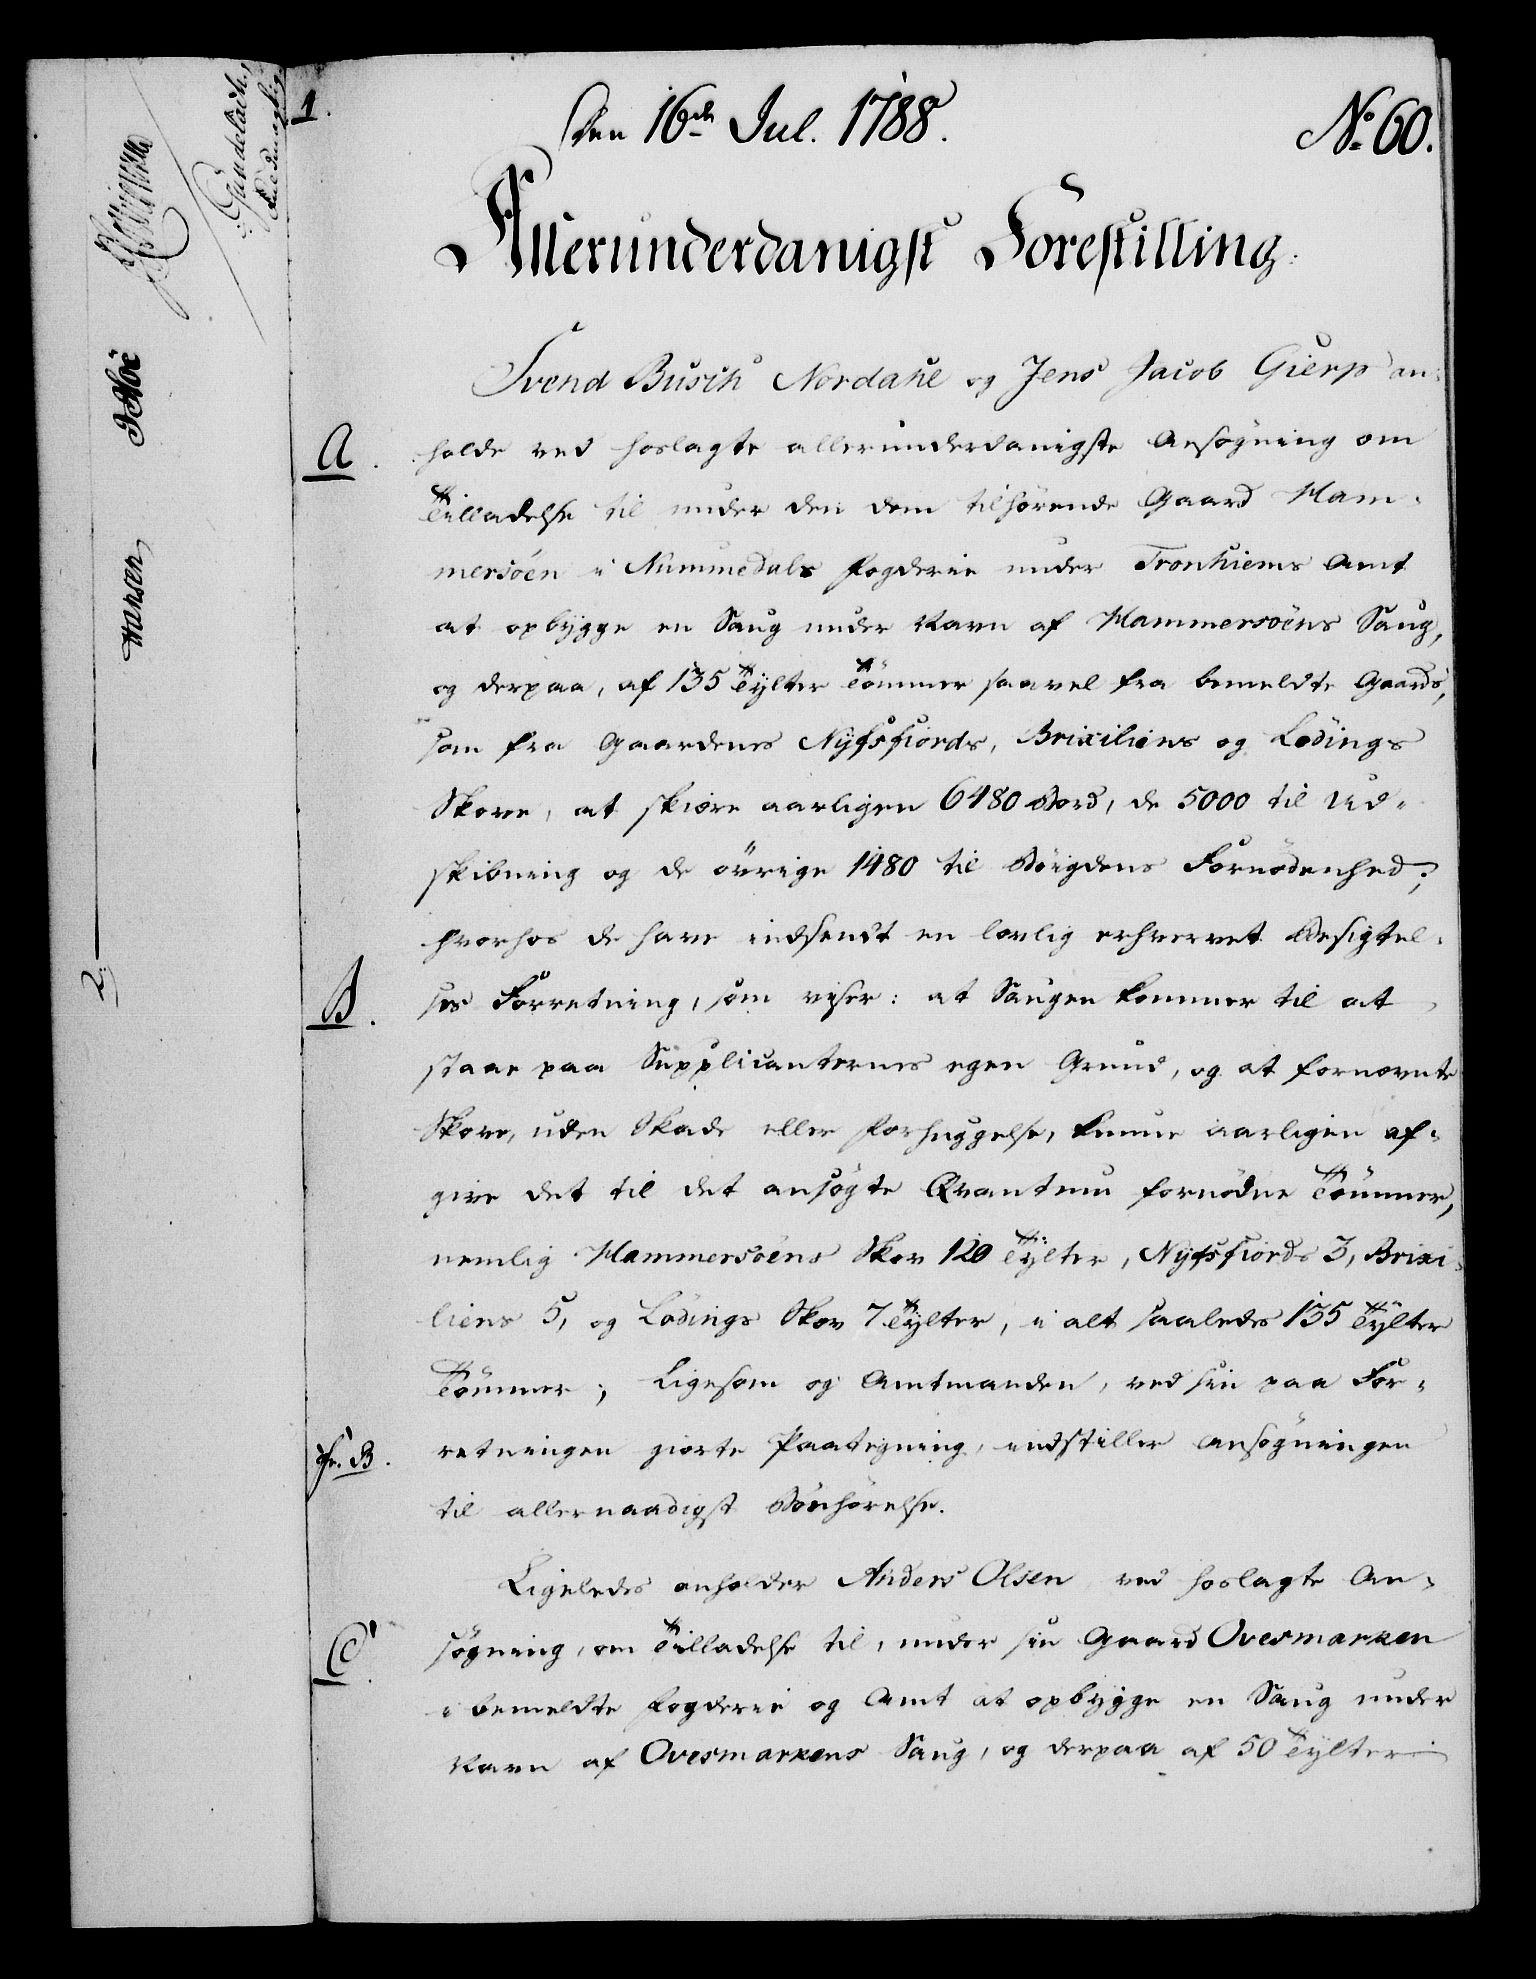 1.
Den 16de Jul. 1788.
No 60.
Allerunderdanigst Forestilling.
Svend Busch Nordahl og Jens Jacob Gierp an-
A.
holde ved hoslagte allerunderdanigste Ansøgning om
Tilladelse til under den dem tilhørende Gaard Ham-
mersöen i Nummedals Fogderie under Tronhiems Amt
at opbygge en Saug under Navn af Hammersöens Saug,
og derpaa, af 135 Tylter Tömmer saavel fra bemeldte Gaards,
som fra Gaardenes Nyfsfiords, Brixiliens og Lödings
Skove, at skiære aarligen 6480 Bord, de 5000 til Ud-
skibning og de övrige 1480 til Böigdens Fornödenhed;
hvorhos de have indsendt en lovlig erhvervet Besigtel-
B.
ses Forretning, som viser: at Saugen kommer til at
staae paa Supplicanternes egen Grund, og at fornævnte
Skove, uden Skade eller Forhuggelse, kunne aarligen af-
give det til det ansøgte Qvantum fornödne Tömmer,
nemlig Hammersöens Skov 120 Tylter, Nyfsfiords 3, Brixi-
liens 5, og Lödings Skov 7 Tylter, i alt saaledes 135 Tylter
Tömmer; Ligesom og Amtmanden, ved sin paa For-
fr. B.
retningen giorte Paategning, indstiller Ansøgningen
til allernaadigst Bönhörelse.
Ligeledes anholder Anders Olsen ved hoslagte An-
C.
søgning, om Tilladelse til, under sin Gaard Ovesmarken
i bemeldte Fogderie og Amt at opbygge en Saug under
Navn af Ovesmarkens Saug, og derpaa af 50 Tylter
Hansen